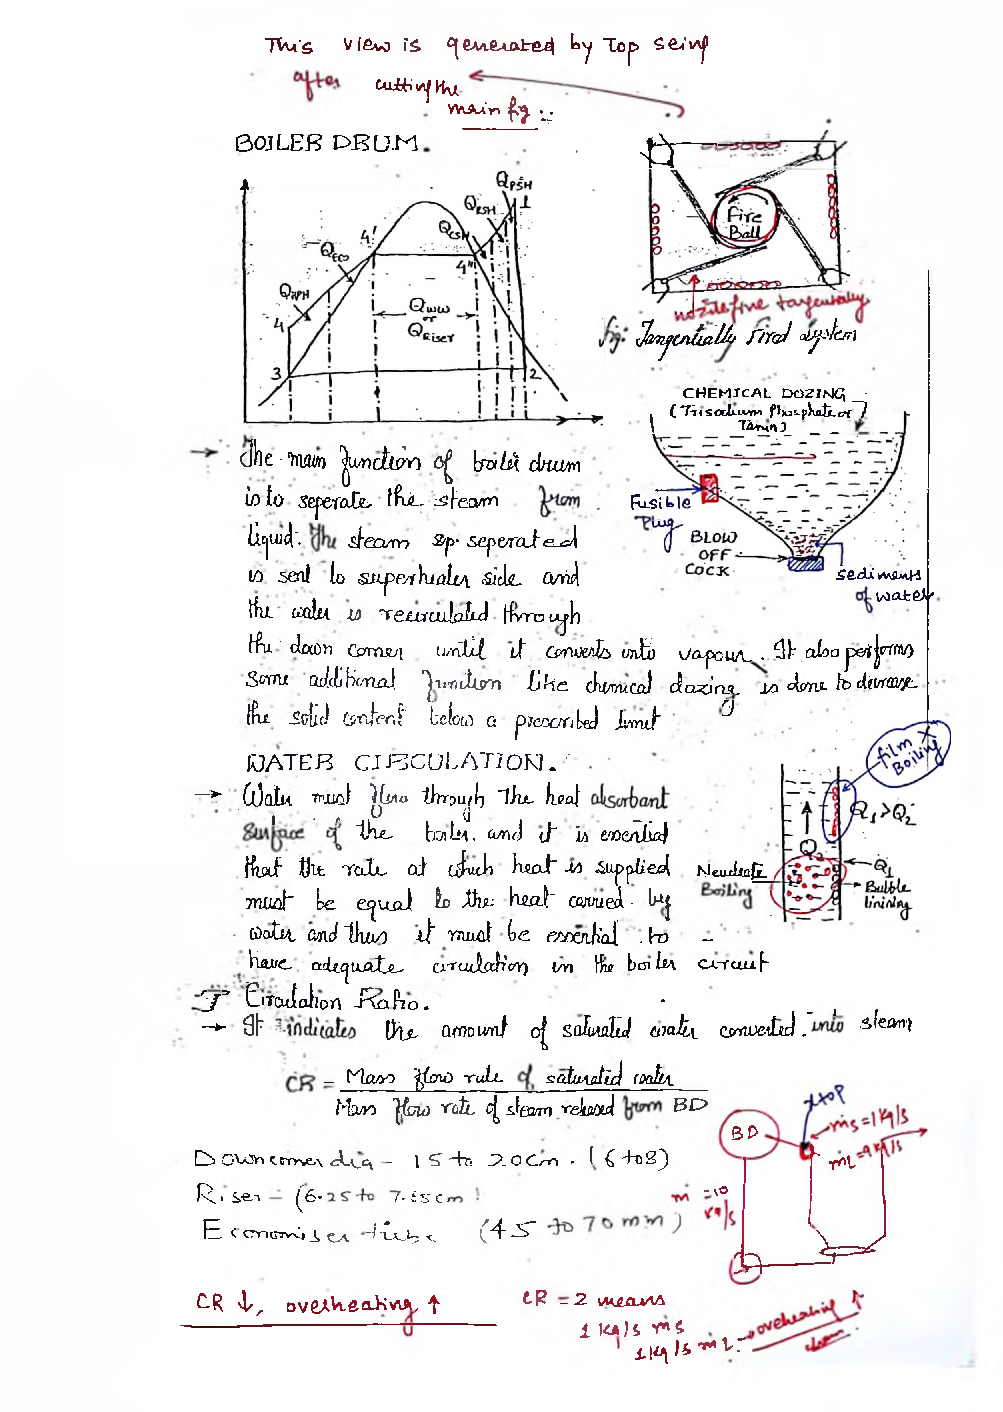 This view is generated by Top seing
after cutting the
main fig
BOILER DRUM.
QPSH
1
QRSH
QCSH
4'
QECO
4"
QAPH
QWW
or
QRiser
4
3
2
Fire
Ball
nozzle fire tangentially
fig: Tangentially Fired system
CHEMICAL DOZING
(Trisodium Phosphate or
Tanin)
Fusible
Plug
BLOW
OFF
COCK
sediments
of water
→ The main function of boiler drum
is to seperate the steam from
liquid. The steam sp. seperated
is sent to superheater side and
the water is recirculated through
the down comer until it converts into vapour. It also performs
some additional function like chemical dozing is done to decrease
the solid content below a prescribed limit
WATER CIRCULATION.
→ Water must flow through the heat absorbant
surface of the boiler. and it is essential
that the rate at which heat is supplied
must be equal to the heat carried by
water and thus it must be essential to
have adequate circulation in the boiler circuit
film X
Boiling
Q1>Q2
Q2
Q1
Neucleate
Boiling
Bubble
linining
Circulation Ratio.
→ It indicates the amount of saturated water converted into steam
CR = Mass flow rate of saturated water
Mass flow rate of steam released from BD
Downcomer dia - 15 to 20cm. (6 to 8)
Riser - (6.25 to 7.55cm)
Economiser tube (45 to 70mm)
xtop
BD
ṁs=1kg/s
ṁL=9kg/s
ṁ =10
kg/s
CR ↓, overheating ↑
CR = 2 means
1 kg/s ṁs
1kg/s ṁL → overheating ↑